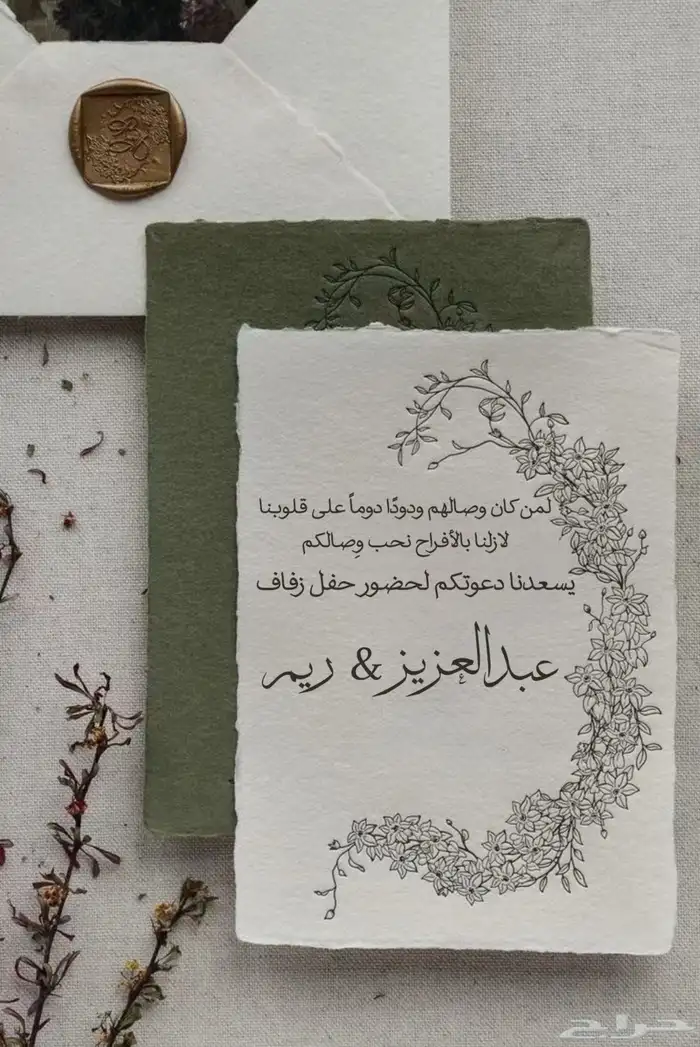 لمن كان وصالهم ودودًا دوماً على قلوبنا
لازلنا بالأفراح نحب وِصالكم
يسعدنا دعوتكم لحضور حفل زفاف
عبدالعزيز & ريم
حراج